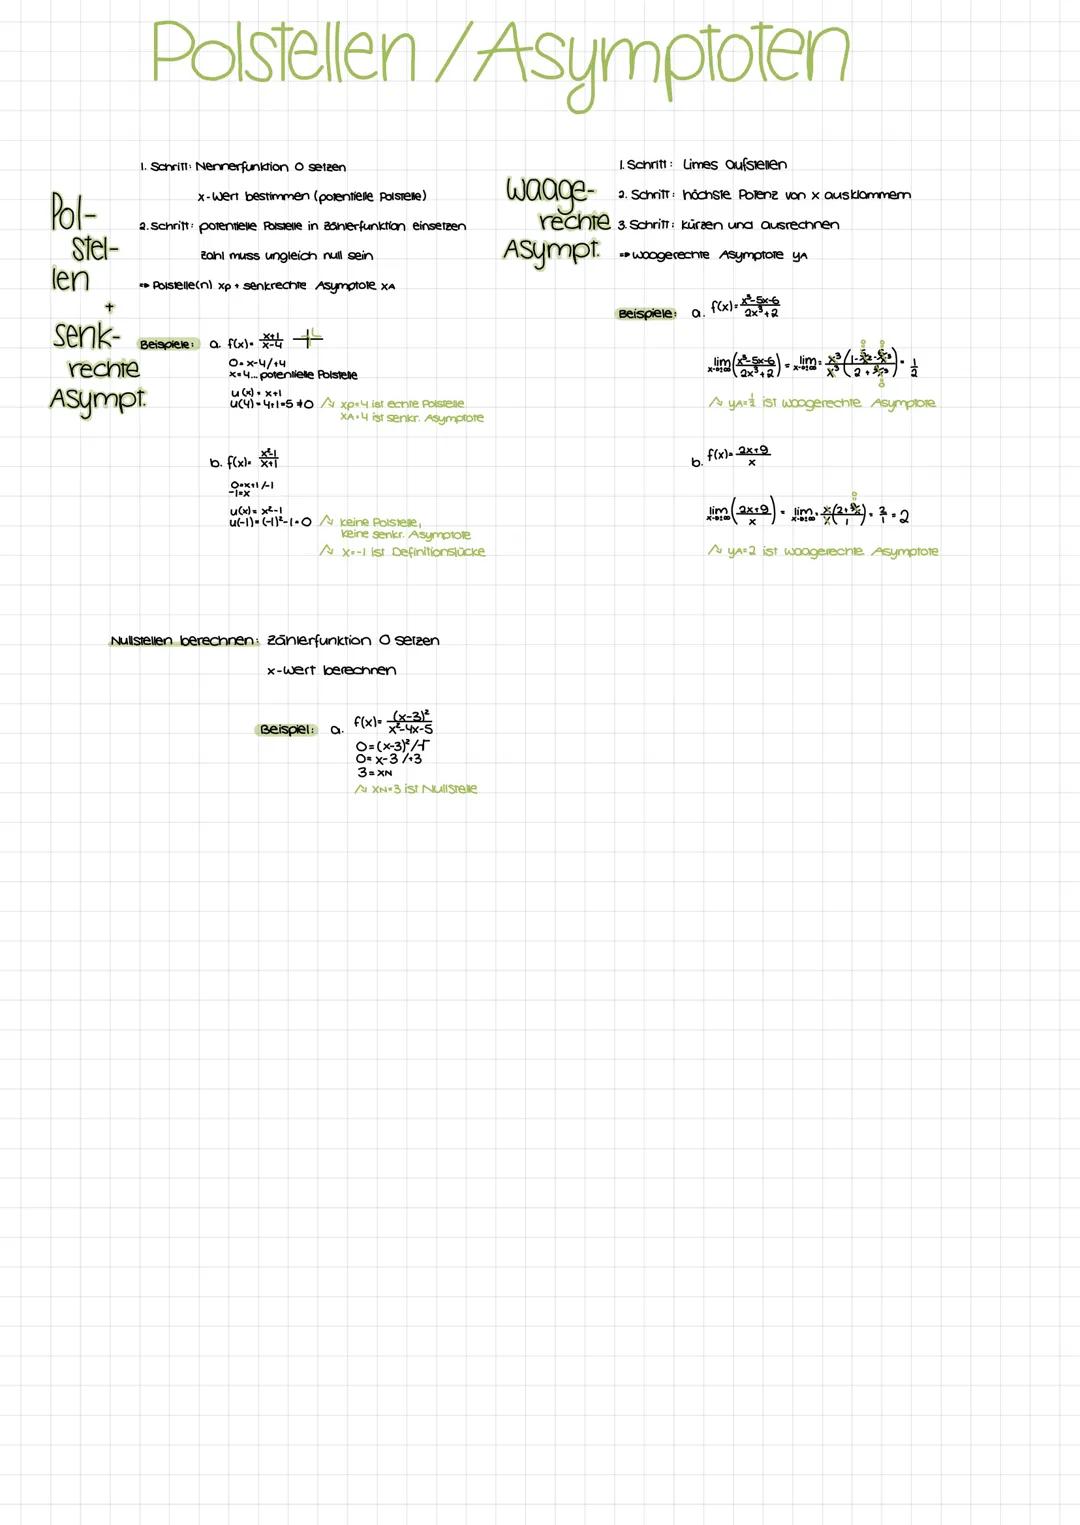 Polstellen / Asymptoten
Pol-
stel-
len
+
senk-
rechte
Asympt.
1. Schritt: Nennerfunktion 0 setzen
x-Wert bestimmen (potentielle Polstelle)
2. Schritt: potentielle Polstelle in Zählerfunktion einsetzen
Zahl muss ungleich null sein
⇒ Polstelle(n) xp + senkrechte Asymptote xA
Beispiele: a. f(x)= (x+1)/(x-4)
0=x-4/+4
x=4... potentielle Polstelle
u(x)=x+1
u(4)=4+1=5≠0 xp=4 ist echte Polstelle
xA=4 ist senkr. Asymptote
b. f(x)= (x²-1)/(x+1)
0=x+1/-1
-1=x
u(x)=x²-1
u(-1)=(-1)²-1=0 keine Polstelle,
keine senkr. Asymptote
x=-1 ist Definitionslücke
waage-
rechte
Asympt.
1. Schritt: Limes aufstellen
2. Schritt: höchste Potenz von x ausklammern
3. Schritt: kürzen und ausrechnen
⇒ waagerechte Asymptote yA
Beispiele: a. f(x)= (x³-5x-6)/(2x³+2)
lim x→±∞ ((x³-5x-6)/(2x³+2)) = lim x→±∞ = 1/2
yA=1/2 ist waagerechte Asymptote
b. f(x)= (2x+9)/x
lim x→±∞ ((2x+9)/x) = lim x→±∞ = 2/1 = 2
yA=2 ist waagerechte Asymptote
Nullstellen berechnen: Zählerfunktion 0 setzen
x-Wert berechnen
Beispiel: a. f(x)= (x-3)²/(x²-4x-5)
0=(x-3)²/√
0=x-3/+3
3=xN
xN=3 ist Nullstelle